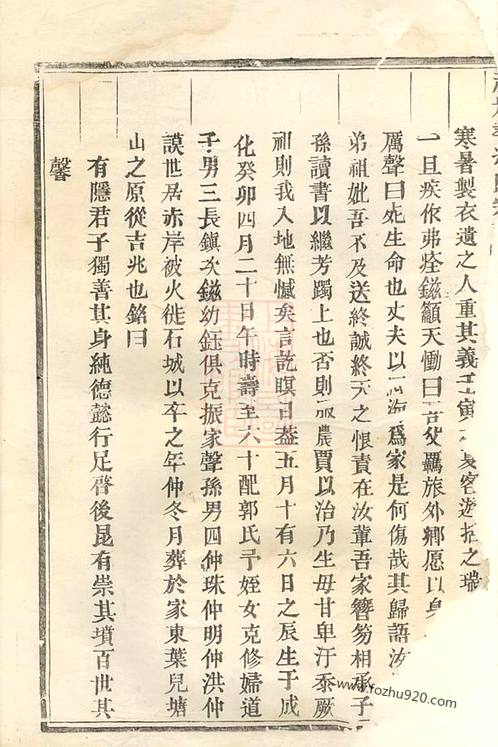 寒暑製衣遺之人重其義壬寅客遊之瑞
一旦疾作弗痊鎡籲天慟曰吾父羈旅外鄉愿以身
厲聲曰死生命也丈夫以四海爲家是何傷哉其歸語汝
弟祖妣吾不及送終誠終天之恨責在汝輩吾家簪笏相承子
孫讀書以繼芳躅上也否則服農賈以治乃生毋甘卑汙忝厥
祖則我入地無憾矣言訖瞑目葢五月十有六日之辰生于成
化癸卯四月二十日午時壽至六十配郭氏予姪女克修婦道
子男三長鎮次鎡幼鈺俱克振家聲孫男四仲珠仲明仲洪仲
謨世居赤岸被火徙石城以卒之年仲冬月葬於家東葉兒塘
山之原從吉兆也銘曰
有隱君子獨善其身純德懿行足啓後昆有崇其墳百世其
馨
www.fozhu920.com